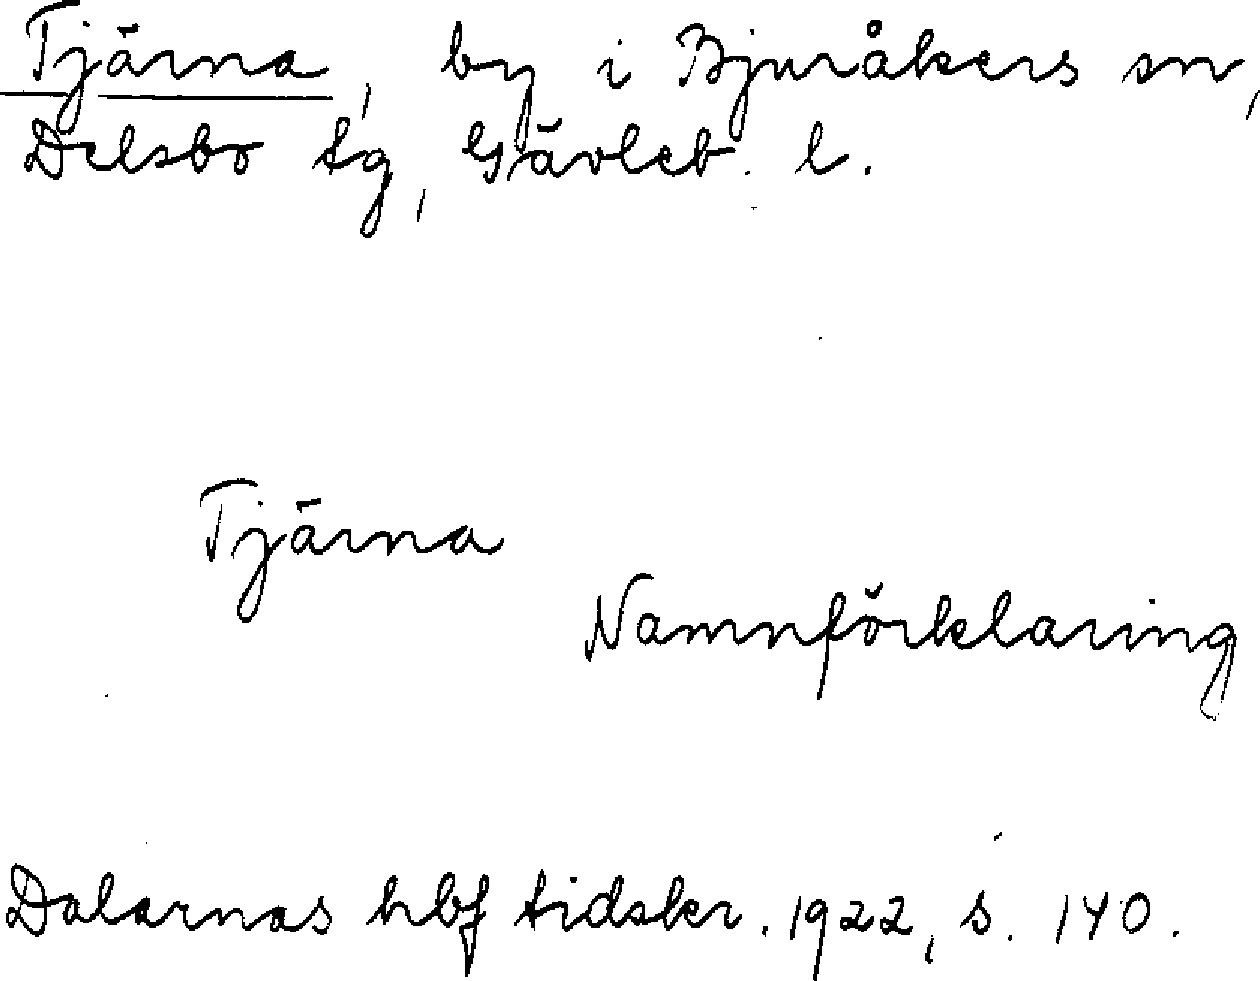 Tjärna, by i Bjuråkers sn,
Delsbo tg, Gävleb. l.
Tjärna
Namnförklaring
Dalarnas hbf tidskr. 1922, s. 140.